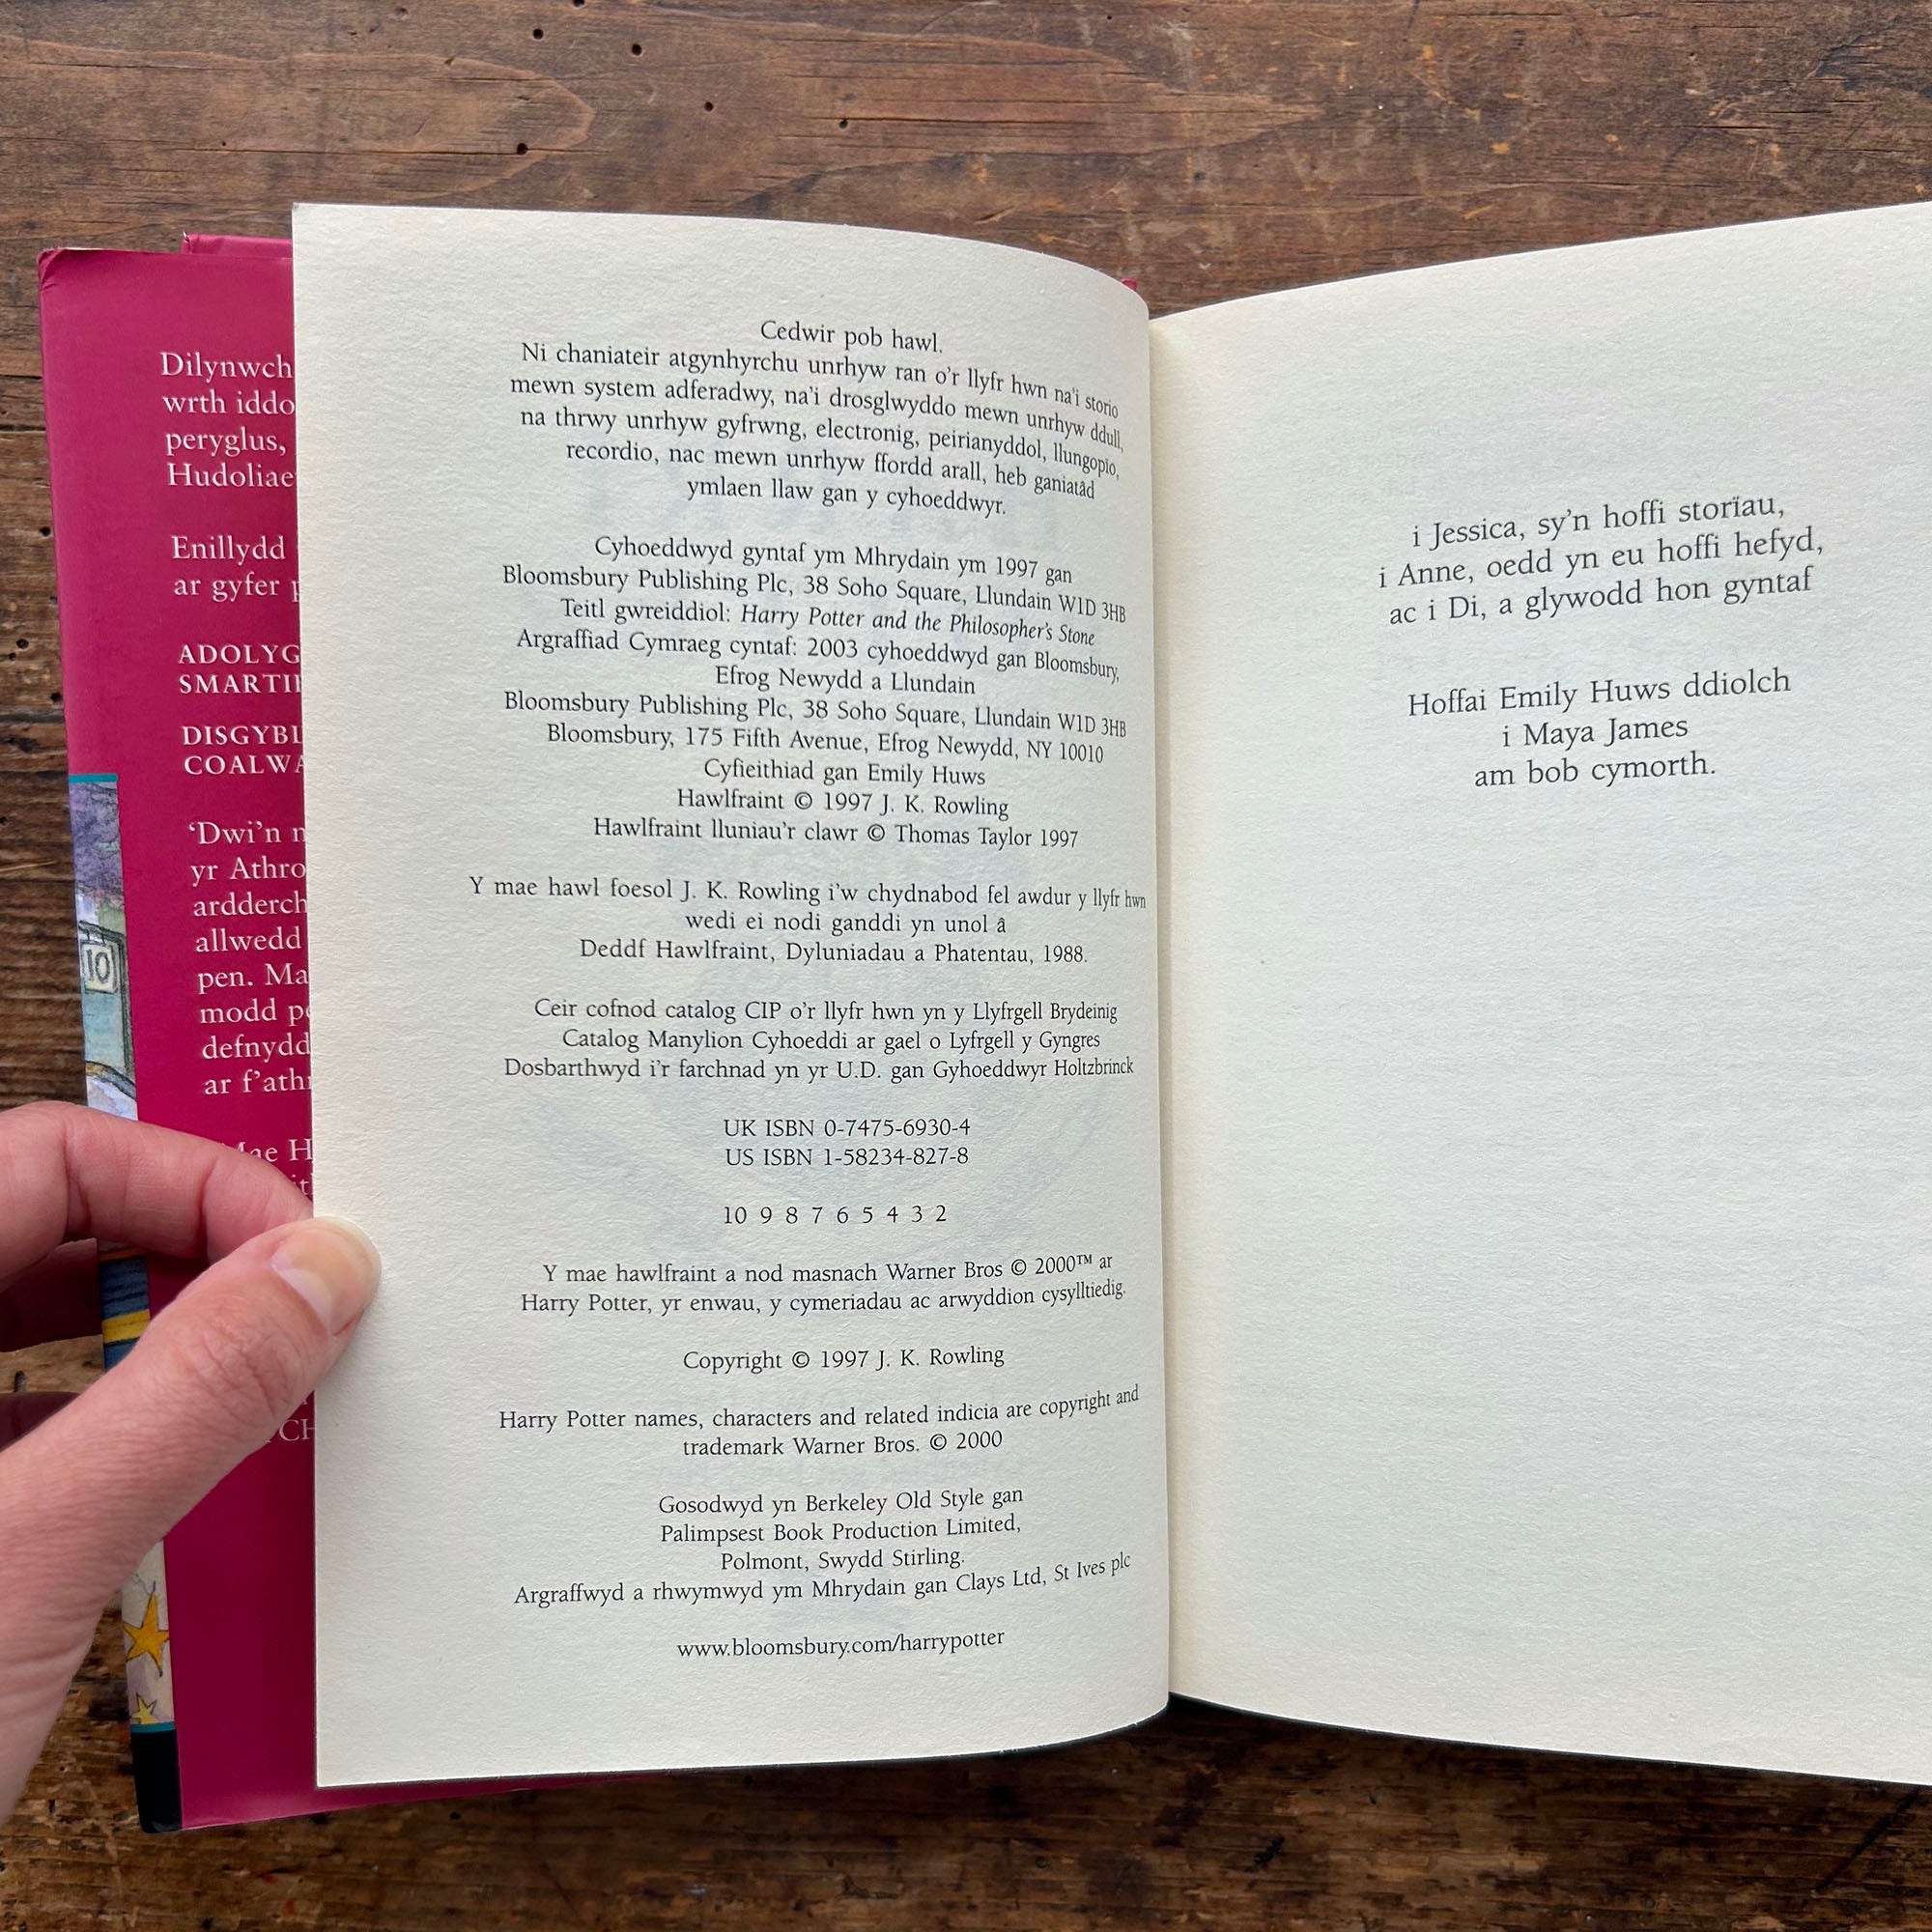 Dilynwch
wrth iddo
peryglus,
Enillydd
ar gyfer
'Dwi'n
yr
allwedd
pen.
modd
10
Cedwir pob hawl.
Ni chaniateir atgynhyrchu unrhyw ran o'r llyfr hwn na'i storio
mewn system adferadwy, na'i drosglwyddo mewn unrhyw ddull,
na thrwy unrhyw gyfrwng, electronig, peirianyddol, llungopïo,
recordio, nac mewn unrhyw ffordd arall, heb ganiatâd
ymlaen llaw gan y cyhoeddwyr.
Cyhoeddwyd gyntaf ym Mhrydain ym 1997 gan
Bloomsbury Publishing Plc, 38 Soho Square, Llundain W1D 3HB
Teitl gwreiddiol: Harry Potter and the Philosopher's Stone
Argraffiad Cymraeg cyntaf: 2003 cyhoeddwyd gan Bloomsbury,
Efrog Newydd a Llundain
Bloomsbury Publishing Plc, 38 Soho Square, Llundain W1D 3HB
Bloomsbury, 175 Fifth Avenue, Efrog Newydd, NY 10010
Cyfieithiad gan Emily Huws
Hawlfraint © 1997 J. K. Rowling
Hawlfraint lluniau'r clawr © Thomas Taylor 1997
Y mae hawl foesol J. K. Rowling i'w chydnabod fel awdur y llyfr hwn
wedi ei nodi ganddi yn unol â
Deddf Hawlfraint, Dyluniadau a Phatentau, 1988.
Ceir cofnod catalog CIP o'r llyfr hwn yn y Llyfrgell Brydeinig
Catalog Manylion Cyhoeddi ar gael o Lyfrgell y Gyngres
Dosbarthwyd i'r farchnad yn yr U.D. gan Gyhoeddwyr Holtzbrinck
UK ISBN 0-7475-6930-4
US ISBN 1-58234-827-8
10 9 8 7 6 5 4 3 2
Y mae hawlfraint a nod masnach Warner Bros © 2000™ ar
Harry Potter, yr enwau, y cymeriadau ac arwyddion cysylltiedig.
Copyright © 1997 J. K. Rowling
Harry Potter names, characters and related indicia are copyright and
trademark Warner Bros. © 2000
Gosodwyd yn Berkeley Old Style gan
Palimpsest Book Production Limited,
Polmont, Swydd Stirling.
Argraffwyd a rhwymwyd ym Mhrydain gan Clays Ltd, St Ives plc
www.bloomsbury.com/harrypotter
i Jessica, sy'n hoffi storïau,
i Anne, oedd yn eu hoffi hefyd,
ac i Di, a glywodd hon gyntaf
Hoffai Emily Huws ddiolch
i Maya James
am bob cymorth.